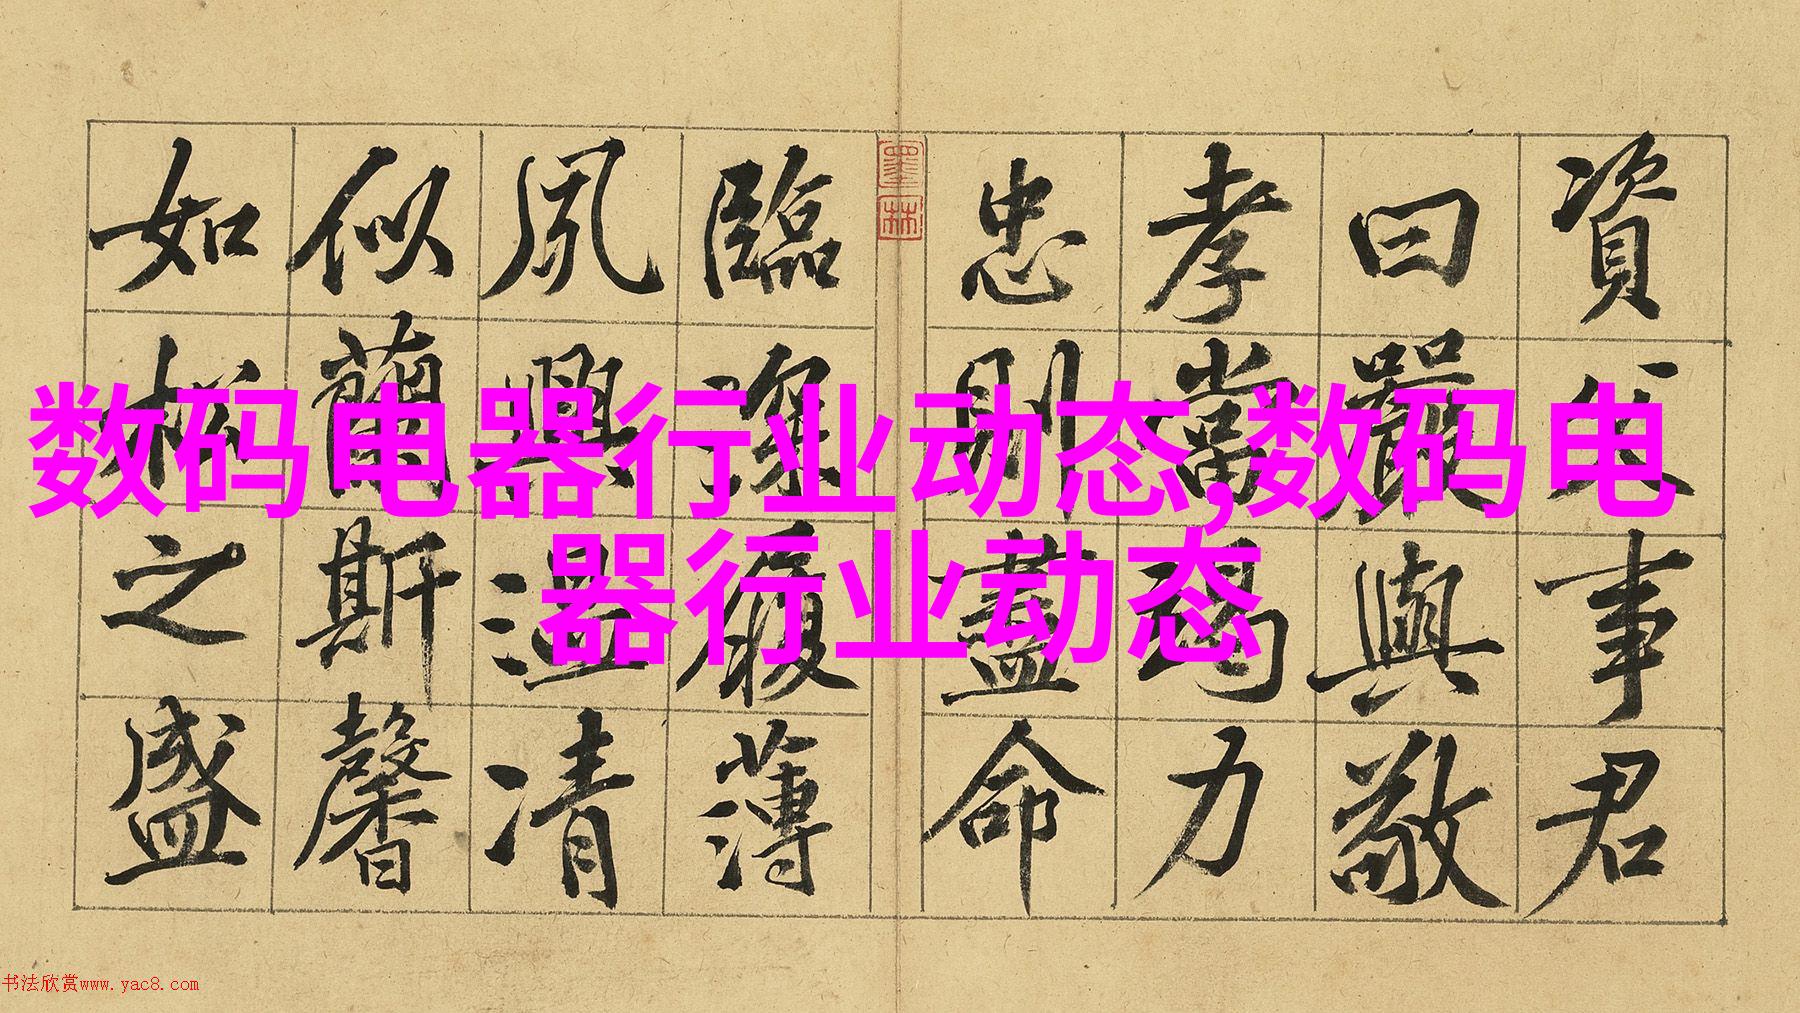 資父事君
曰嚴與敬
孝當竭力
忠則盡命
臨深履薄
夙興溫凊
似蘭斯馨
如松之盛
墨林
数码电器行业动态,数码电
器行业动态
书法欣赏www.yac8.com